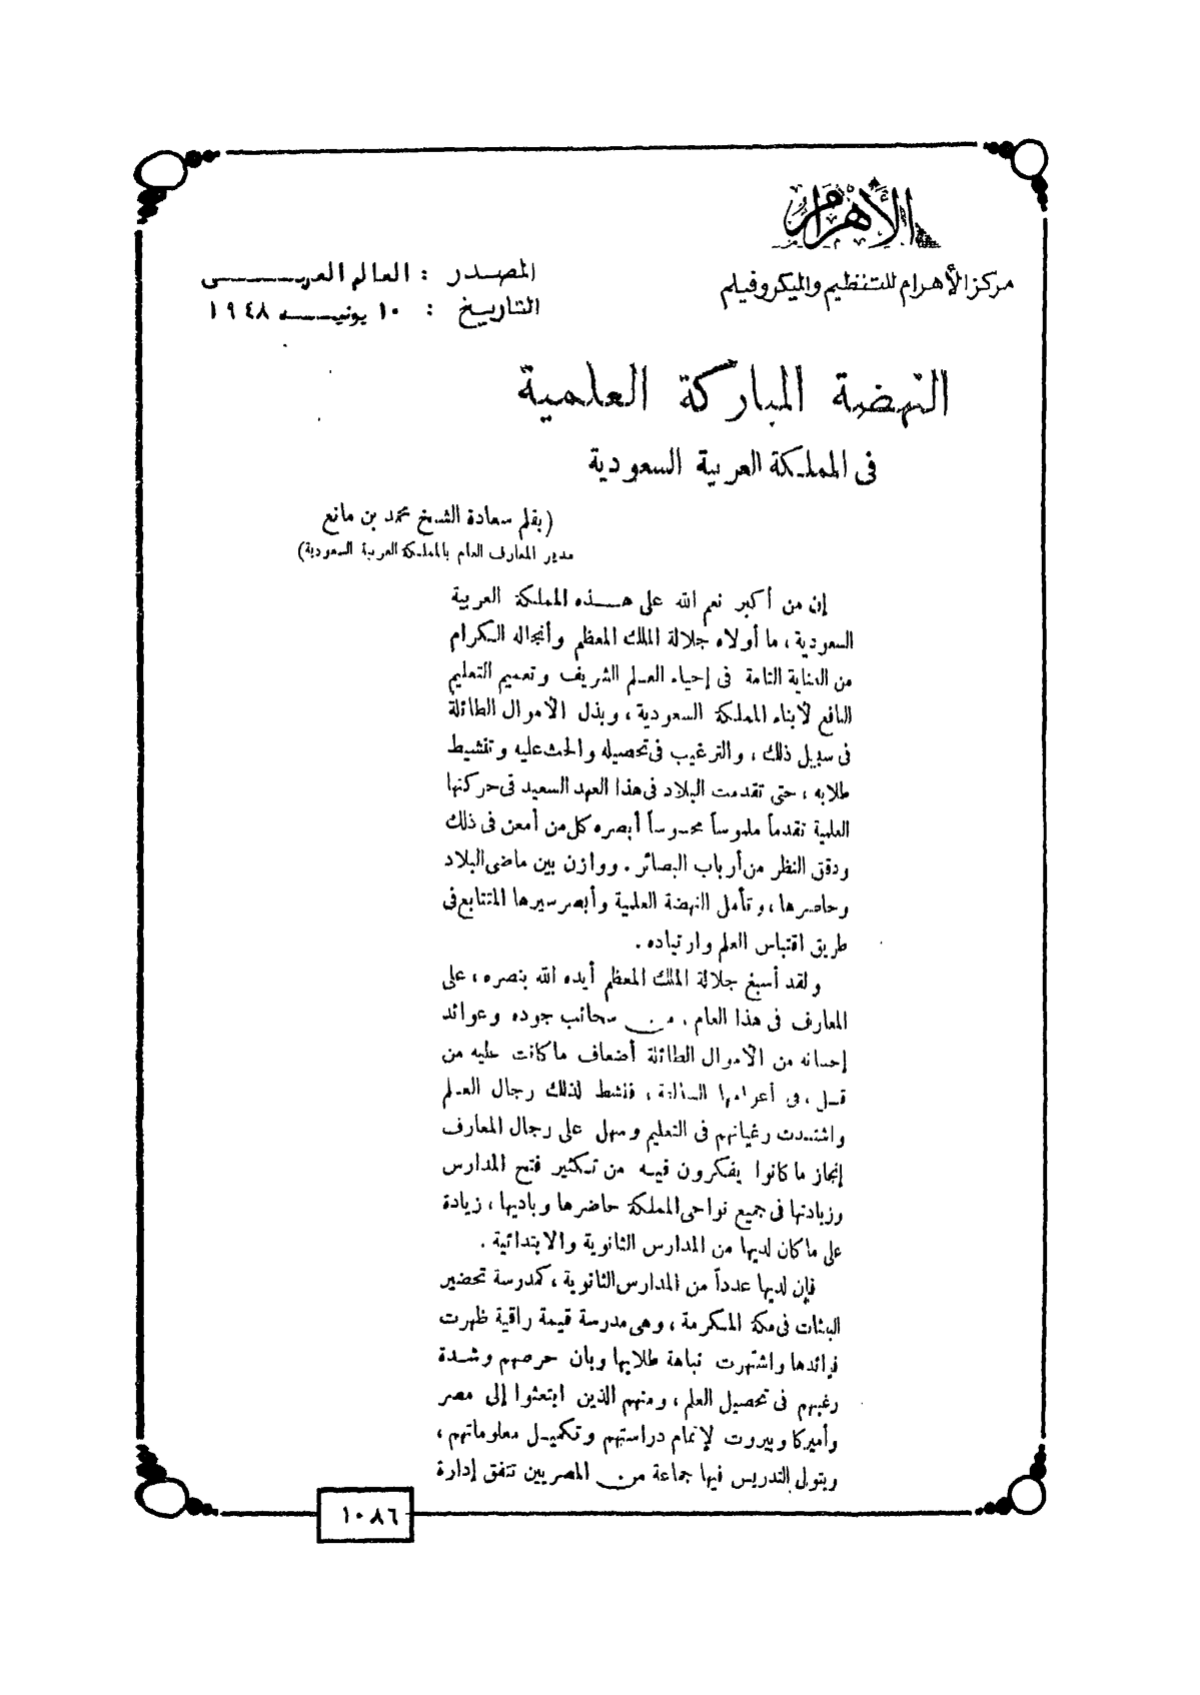 الأهرام
مركز الأهرام للتنظيم والميكروفيلم
المصدر : العالم العربى
التاريخ : ١٠ يونيه ١٩٤٨
النهضة المباركة العلمية
فى المملكة العربية السعودية
(بقلم سعادة الشيخ محمد بن مانع
مدير المعارف العام بالمملكة العربية السعودية)
إن من أكبر نعم الله على هذه المملكة العربية
السعودية ، ما أولاه جلالة الملك المعظم وأنجاله الكرام
من العناية التامة فى إحياء العلم الشريف وتعميم التعليم
النافع لأبناء المملكة السعودية ، وبذل الأموال الطائلة
فى سبيل ذلك ، والترغيب فى تحصيله والحث عليه وتنشيط
طلابه ، حتى تقدمت البلاد فى هذا العهد السعيد فى حركتها
العلمية تقدماً ملموساً محسوساً أبصره كل من أمعن فى ذلك
ودقق النظر من أرباب البصائر . ووازن بين ماضى البلاد
وحاضرها ، وتأمل النهضة العلمية وأبصر سيرها المتتابع فى
طريق اقتباس العلم وارتياده .
ولقد أسبغ جلالة الملك المعظم أيده الله بنصره ، على
المعارف فى هذا العام ، من سحائب جوده وعوائد
إحسانه من الأموال الطائلة أضعاف ما كانت عليه من
قبل ، فى أعوامها السالفة ، فنشط لذلك رجال العلم
واشتدت رغباتهم فى التعليم وسهل على رجال المعارف
إنجاز ما كانوا يفكرون فيه من تكثير فتح المدارس
وزيادتها فى جميع نواحى المملكة حاضرها وباديها ، زيادة
على ما كان لديها من المدارس الثانوية والابتدائية .
فإن لديها عدداً من المدارس الثانوية ، كمدرسة تحضير
البعثات فى مكة المكرمة ، وهى مدرسة قيمة راقية ظهرت
فوائدها واشتهرت نباهة طلابها وبان حرصهم وشدة
رغبتهم فى تحصيل العلم ، ومنهم الذين ابتعثوا إلى مصر
وأميركا وبيروت لإتمام دراستهم وتكميل معلوماتهم ،
ويتولى التدريس فيها جماعة من المصريين تتفق إدارة
١٠٨٦